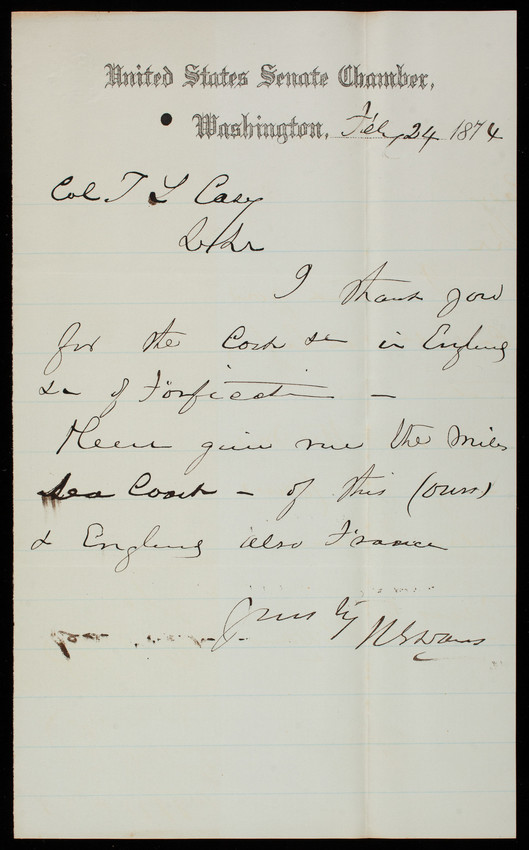 United States Senate Chamber,
Washington, Feby 24 1874
Col T L Casey
I thank you
for the Cost &c in England
&c of Fortification –
Please give me the miles
Sea Coast – of this (ours)
& England also France